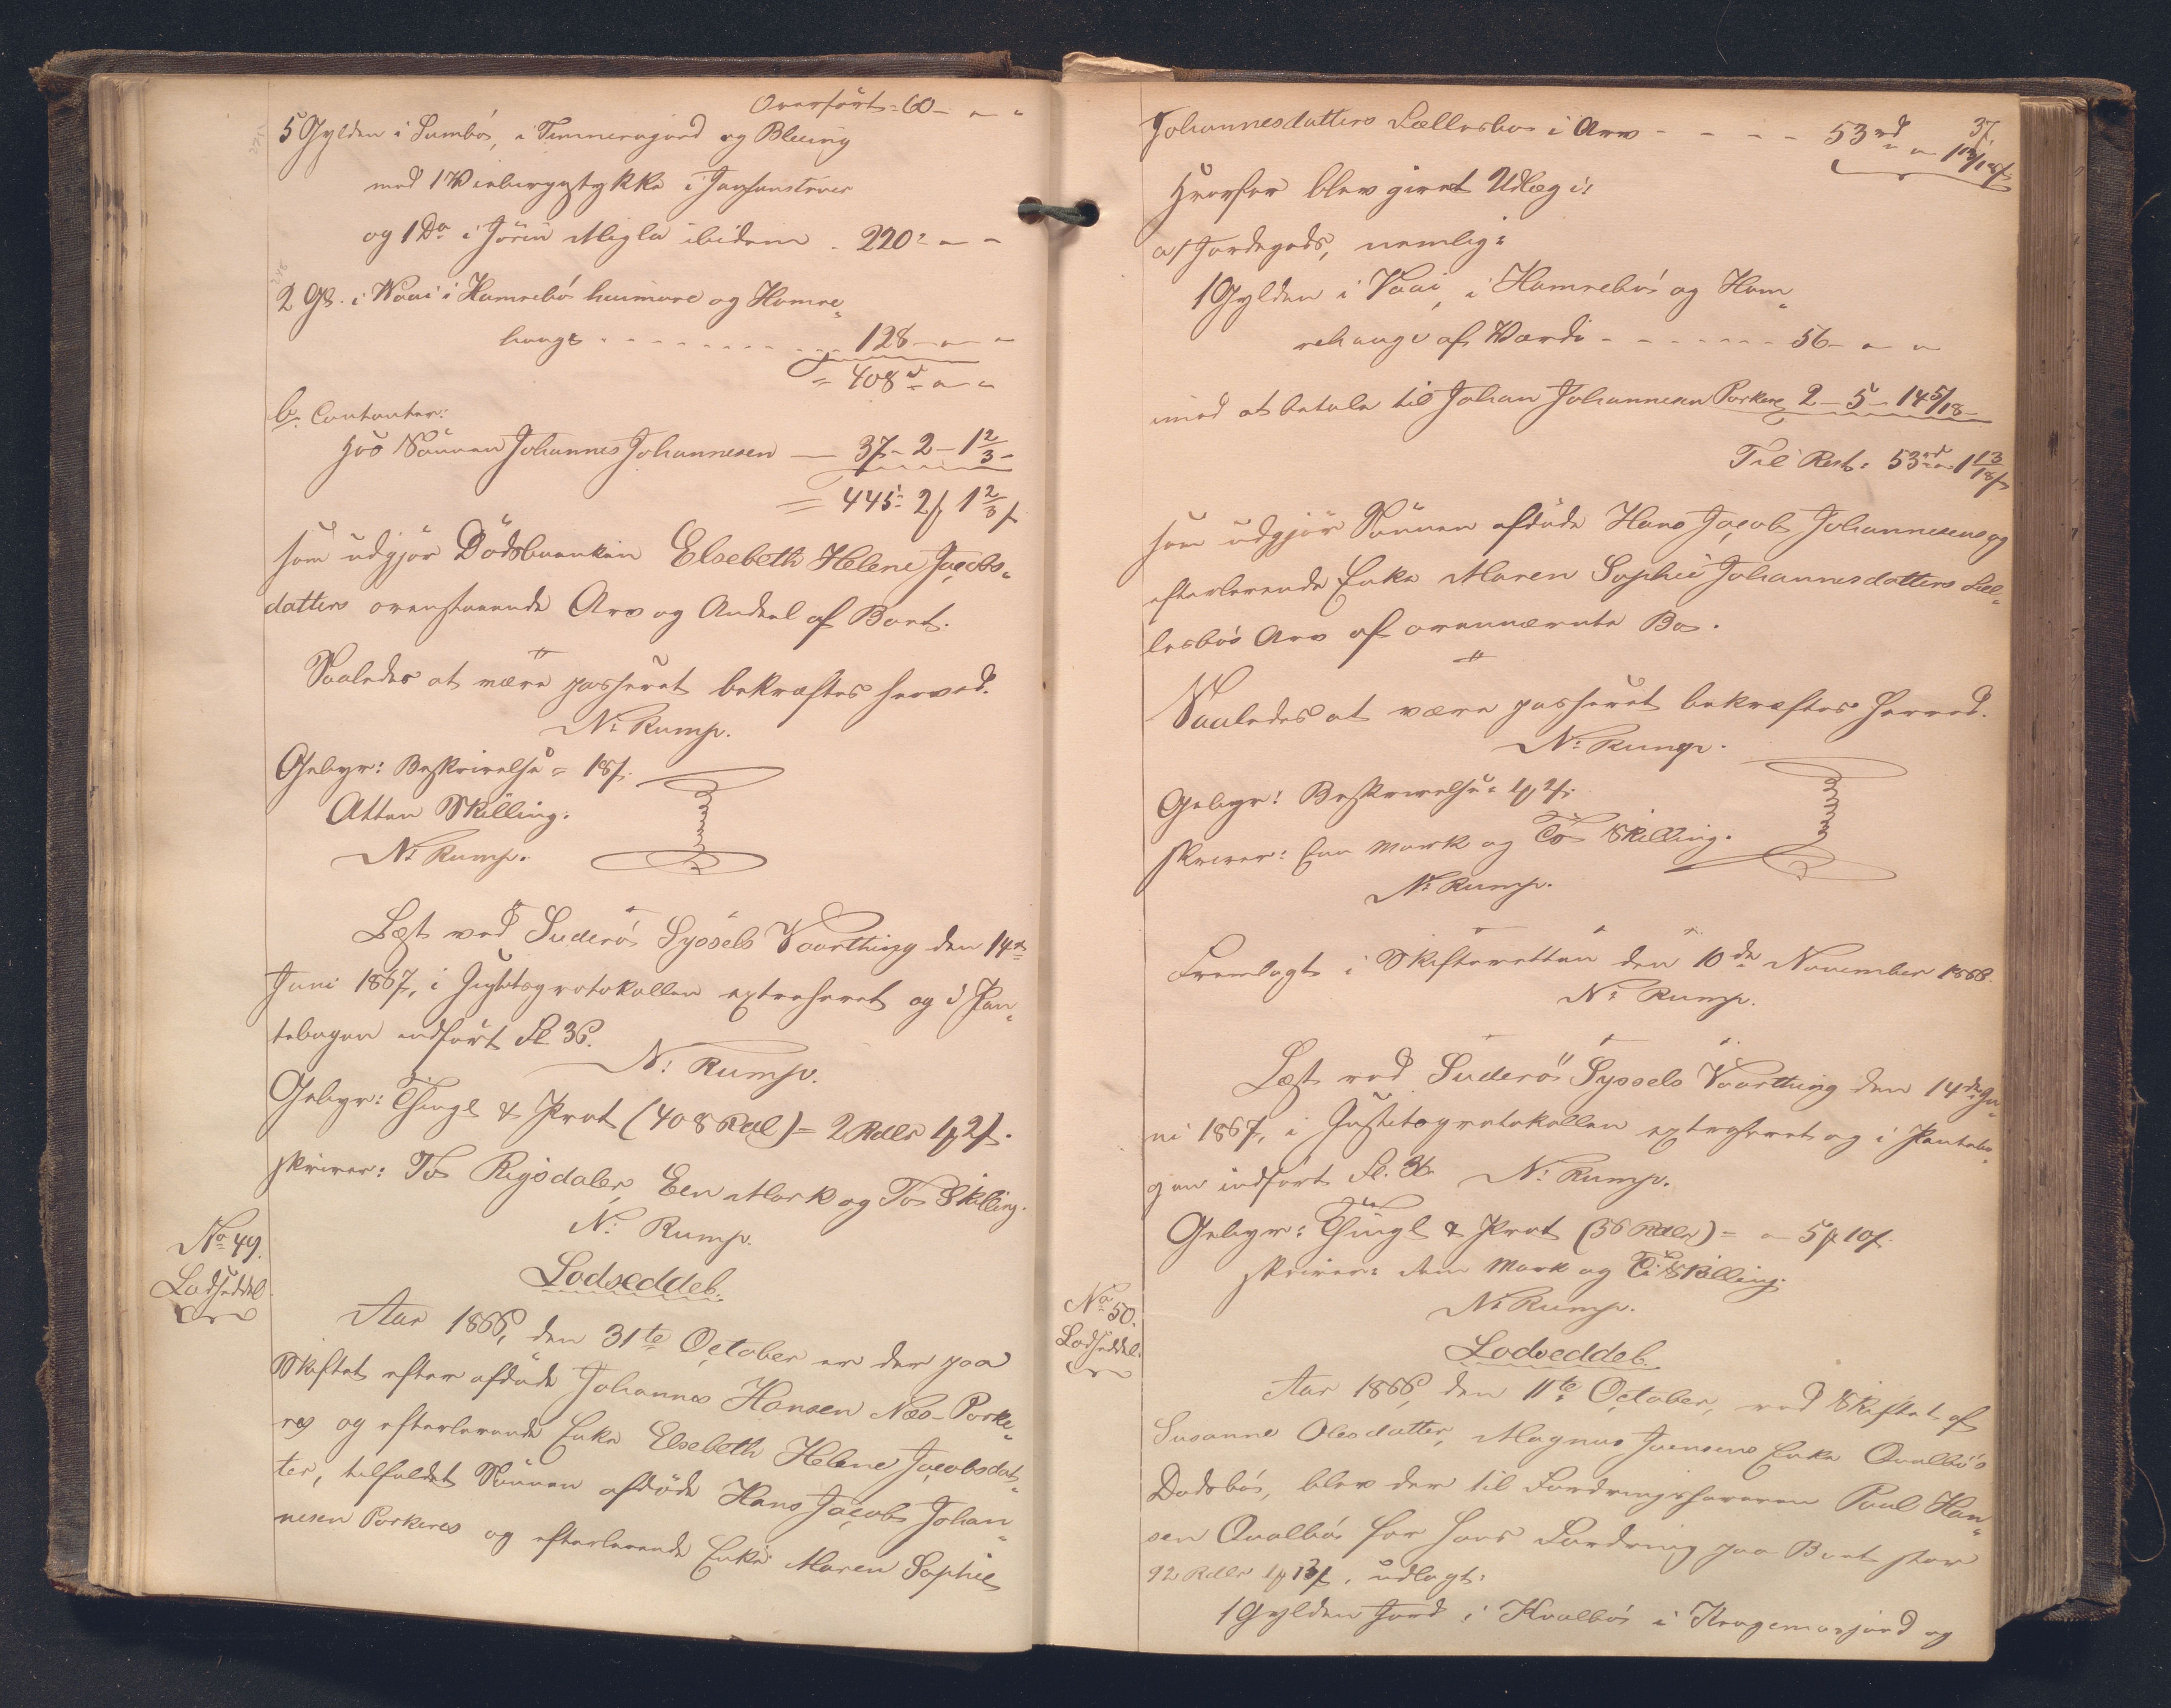 Overført = 60 - " - "
5 Gylden i Sumbø, i Timmeragjord og Bleiing
med 1 Vinbergstykke i
og 1 Do i Jörin Migla ibidem - 220 = " - "
2 Gl. i Waai i Hamrebø heimare og Hamre„
hauge - - - - - - - - 128 - " - "
= 408 rd " - "
b. Contanter:
hos Sönnen Johannes Johannesen — 37 - 2 - 1 2/3 -
= 445 = 2 ₰ 1 2/3 ß
som udgjør Dödsboenken Elsebeth Helene Jacobs„
datters ovenstaaende Arv og Andeel af Boet.
Saaledes at være passeret bekræftes herved.
N: Rump.
Gebyr: Beskrivelse = 18 ß.
Atten Skilling.
N: Rump.
Læst ved Suderö Syssels Vaarthing den 14de
Juni 1867, i Justitsprotokollen extraheret og i Pan„
tebogen indført Fl. 36.
N: Rump.
Gebyr: Thingl & Prot (408 Rdl) = 2 Rdlr 1 ₰ 2 ß.
skriver: To Rigsdaler, Een Mark og To Skilling.
N: Rump.
No 49.
Lodseddel.
Lodseddel.
Aar 1866, den 31te October er der paa
Skiftet efter afdøde Johannes Hansen Næs-Porke„
res og efterlevende Enke Elsebeth Helene Jacobsdat„
ter, tilfaldet Sönnen afdöde Hans Jacob Johan„
nesen Porkeres og efterlevende Enke Maren Sophie
37.
Johannesdatters Fællesbo i Arv - - - - - 53 rd " - 1 13/18 ß
Hvorfor blev givet Udlæg i:
a/ Jordegods, nemlig:
1 Gylden i Vaai, i Hamrebø og Ham„
rehauge af Værdi - - - - - - - 56 - " - "
imod at betale til Johan Johannesen Porkere 2 - 5 - 14 5/18 -
Til Rest: 53 rd " - 1 13/18 ß
som udgjør Sönnen afdöde Hans Jacob Johannesens og
efterlevende Enke Maren Sophie Johannesdatters Fæl„
lesbøs Arv af ovennævnte Bo.
Saaledes at være passeret bekræftes herved.
N: Rump.
Gebyr: Beskrivelse = 1 ₰ 2 ß.
skriver: Een Mark og To Skilling.
N: Rump.
Fremlagt i Skifteretten den 10de November 1866.
N: Rump.
Læst ved Suderö Syssels Vaarthing den 14de Ju„
ni 1867, i Justitsprotokollen extraheret og i Pantebo„
gen indført Fl. 36. N: Rump.
Gebyr: Thingl & Prot (56 Rdlr) = " 5 ₰ 10 ß.
skriver: Fem Mark og Ti Skilling.
N: Rump.
No 50.
Lodseddel.
Lodseddel.
Aar 1866, den 11te October, ved Skiftet af
Susanne Olesdatter, Magnus Joensens Enke Qvalbø's
Dødsbø, blev der til Fordringshaveren Poul Han„
sen Qvalbø for hans Fordring paa Boet stor
92 Rdlr 1 ₰ 13 ß, udlagt:
1 Gylden Jord i Hvalbø i Kragemarjord og